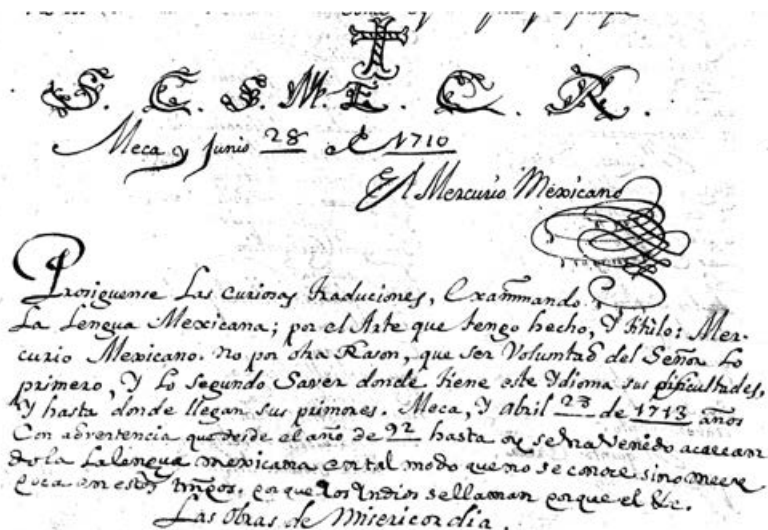 S. C. S. M. E. C. R.
Meca y Junio 28 de 1710
El Mercurio Mexicano
Prosiguense Las curiosas traduciones, Exammando
La Lengua Mexicana; por el Arte que tengo hecho, Y titilo: Mer-
curio Mexicano. no por otra Rason, que ser Voluntad del Señor Lo
primero, Y Lo segundo Saver donde tiene este Ydioma sus dificultades,
Y hasta donde llegan sus primores. Meca, Y Abril 23 de 1713 años
Con advertencia que desde el año de 92 hasta oy se
dola Lalengua mexicana en tal modo que no se conoce sino
porque los Indios sellaman porque el &c.
Las obras de Misericordia.